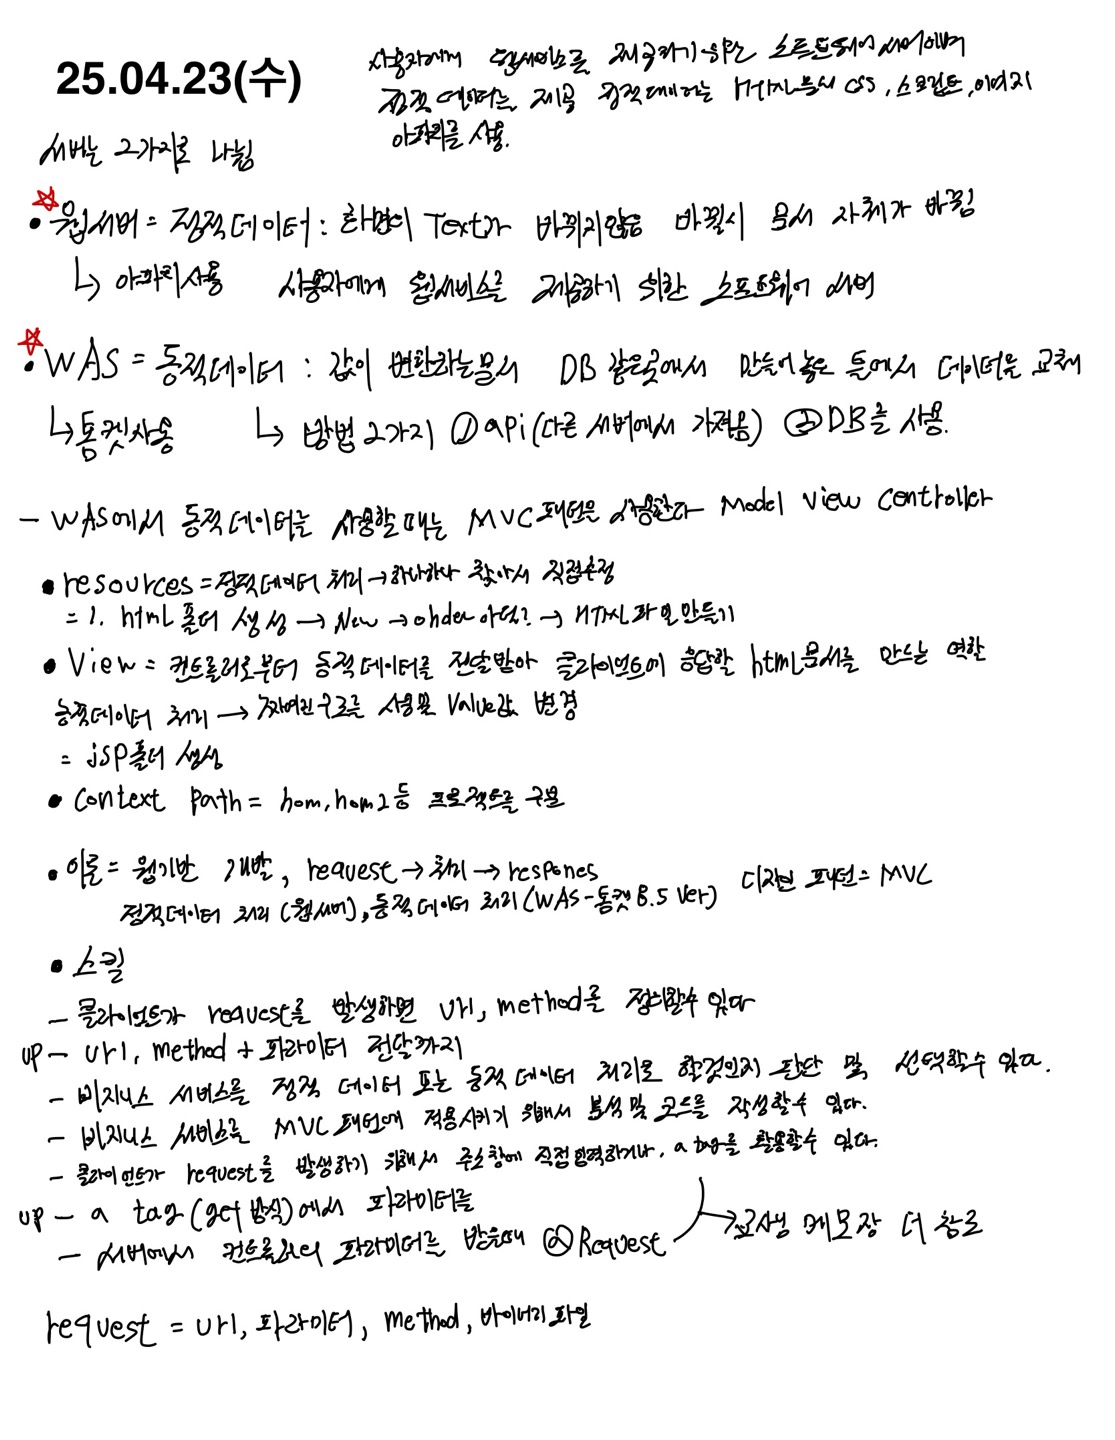 25.04.23(수)
사용자에게 웹서비스를 제공하기 위한 소프트웨어 서버이며
정적 데이터를 제공 정적데이터는 HTML문서 CSS, 스크립트, 이미지
아파치를 사용.
서버는 2가지로 나뉨
• 웹서버 = 정적데이터 : 화면이 Text가 바뀌지않음 바뀔시 문서 자체가 바뀜
↳ 아파치사용 사용자에게 웹서비스를 제공하기 위한 소프트웨어 서버
• WAS = 동적데이터 : 값이 변환하는문서 DB 같은곳에서 만들어 놓은 틀에서 데이터를 교체
↳ 톰켓사용 ↳ 방법 2가지 ① api(다른 서버에서 가져옴) ② DB를 사용.
- WAS에서 동적데이터를 사용할때는 MVC패턴을 사용한다 Model View Controller
• resources = 정적데이터 처리 → 하나하나 찾아서 직접수정
= 1. html 폴더 생성 → New → HTML 파일만들기
• View = 컨트롤러로부터 동적데이터를 전달받아 클라이언트에 응답할 html문서를 만드는 역할
동적데이터 처리 → 짜여진 구조를 사용 Value값 변경
= jsp폴더 생성
• Context path = hom, hom2 등 프로젝트를 구분
• 이론 = 웹기반 개발, request → 처리 → respones
정적데이터 처리 (웹서버), 동적데이터 처리 (WAS-톰캣 8.5 ver) 디자인 패턴 = MVC
• 스킬
- 클라이언트가 request를 발생하면 url, method를 정의할수 있다
up - url, method + 파라미터 전달까지
- 비지니스 서비스를 정적 데이터 또는 동적 데이터 처리로 할것인지 판단 및 선택할수 있다.
- 비지니스 서비스를 MVC 패턴에 적용시키기 위해서 분석 및 코드를 작성할수 있다.
- 클라이언트가 request를 발생하기 위해서 주소창에 직접입력하거나, a tag를 활용할수 있다.
up - a tag (get 방식)에서 파라미터를
- 서버에서 컨트롤러의 파라미터를 받을때 @Request → 고생 메모장 더 참고
request = url, 파라미터, method, 바이너리 파일